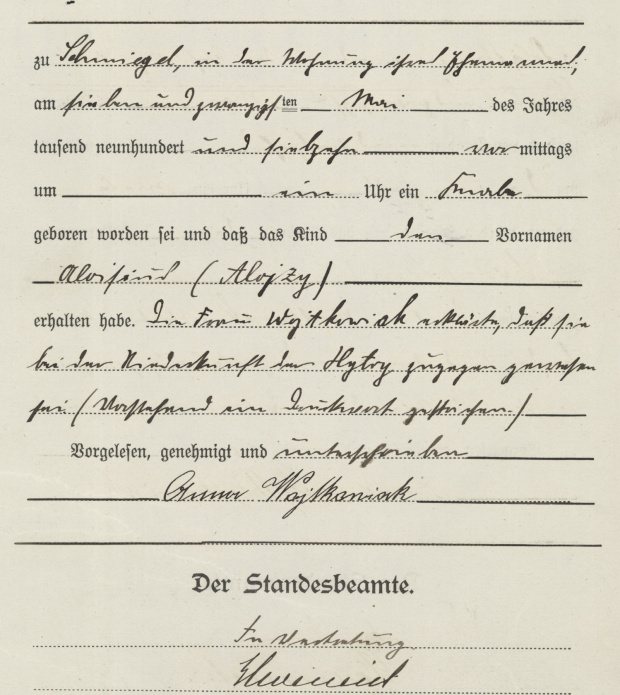 zu Schmiegel, in der Wohnung ihres Ehemannes,
am sieben und zwanzigsten Mai des Jahres
tausend neunhundert und siebzehn vormittags
um ein Uhr ein Knabe
geboren worden sei und daß das Kind den Vornamen
Aloisius (Alojzy)
erhalten habe. Die Frau Wojtkowiak erklärte, daß sie
bei der Niederkunft der Hytry zugegen gewesen
sei. (Vorstehend ein Druckwort gestrichen.)
Vorgelesen, genehmigt und unterschrieben
Anna Wojtkowiak
Der Standesbeamte.
In Vertretung